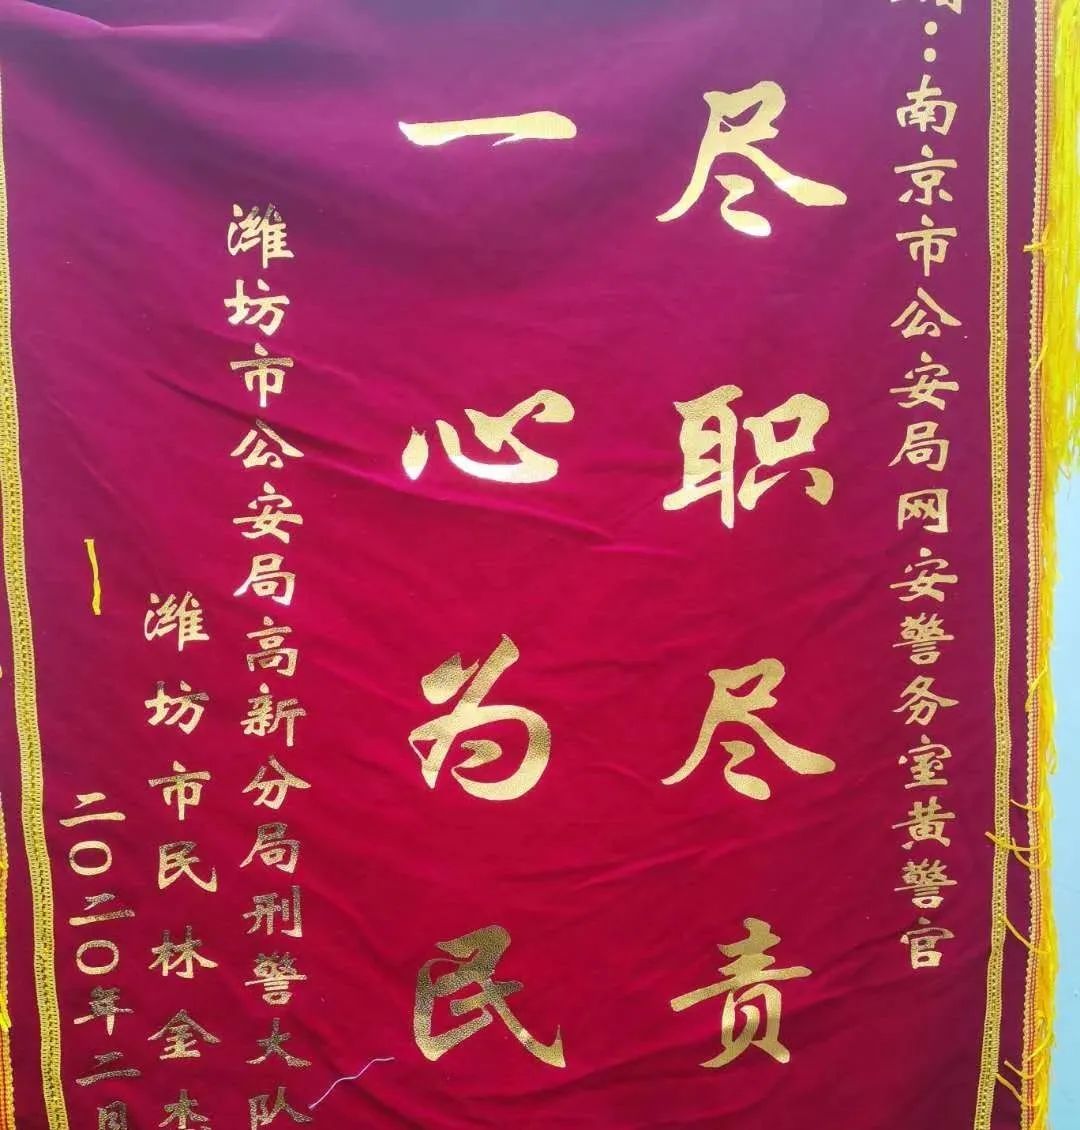 ：南京市公安局网安警务室黄警官
尽职尽责
一心为民
潍坊市公安局高新分局刑警大队
潍坊市民林金
二〇二〇年二月